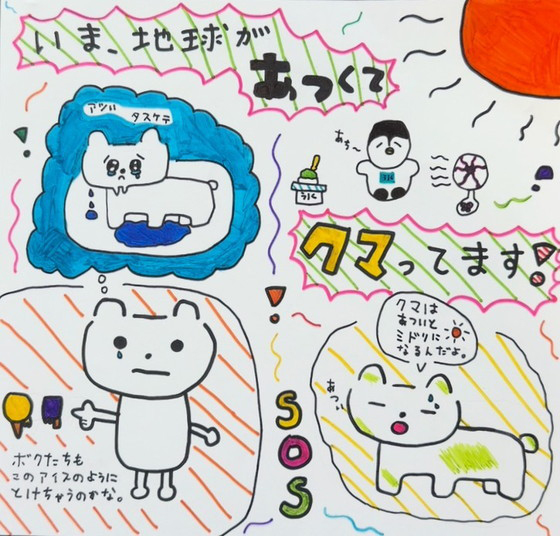 いま、地球が
あつくて
アツい
タスケテ
あち〜
クマってます!
クマは
あついと
ミドリに
なるんだよ。
あつ
SOS
ボクたちも
このアイスのように
とけちゃうのかな。